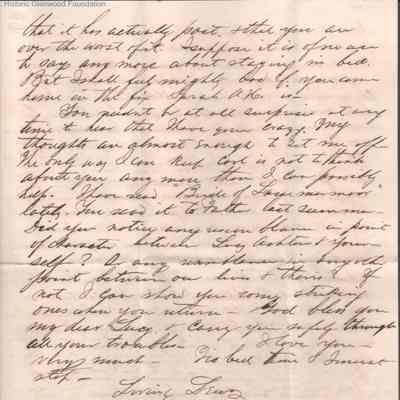 Historic Glenwood Foundation
that it has actually past, & that you are
over the worst of it. I suppose it is of no use
to say any more about staying in bed.
But I shall feel mighty bad if you come
home in the fix Sarah A. is in
You needn't be at all surprise at any
time to hear that I have gone crazy. My
thoughts are almost enough to set me off
The only way I can keep cool is not to think
about you any more than I can possibly
help. I have read "Bride of Lammermoor"
lately. I've read it to Faith last summer.
Did you notice any resemblance in point
of character between Lucy Ashton & your-
self? Or any resemblance in any other
point between our lives & theirs. If
not I can show you some striking
ones when you return - God bless you
my dear Lucy, & carry you safely through
all your troubles. I love you -
very much - Its bed time & I must
stop -
Loving Lewy